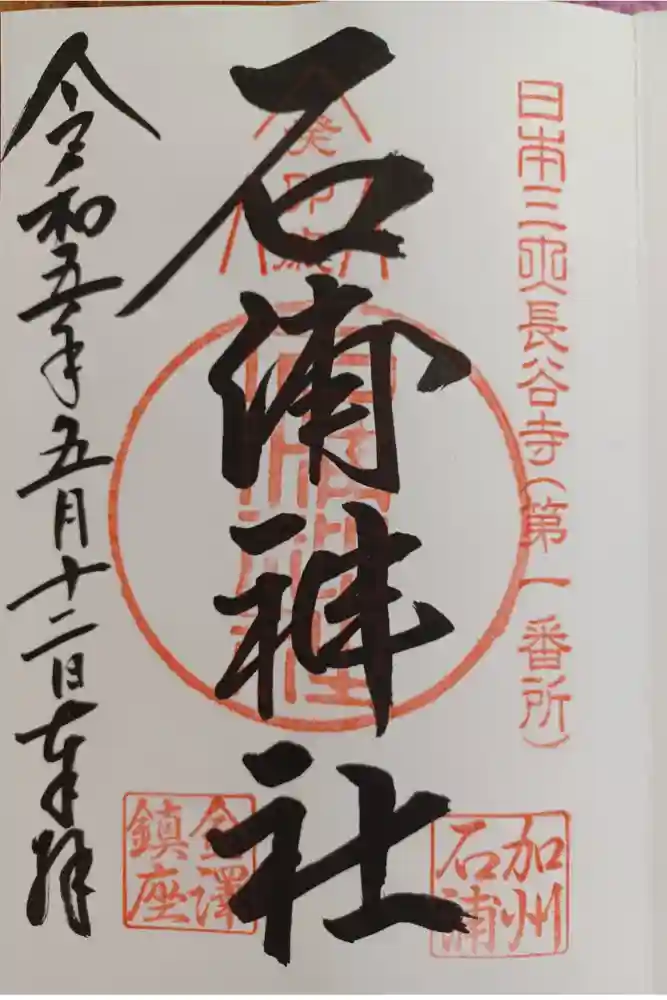 日本三大長谷寺(第一番所)
加州
石浦
癸卯歳
石浦神社
金澤
鎮座
令和五年五月十二日奉拝